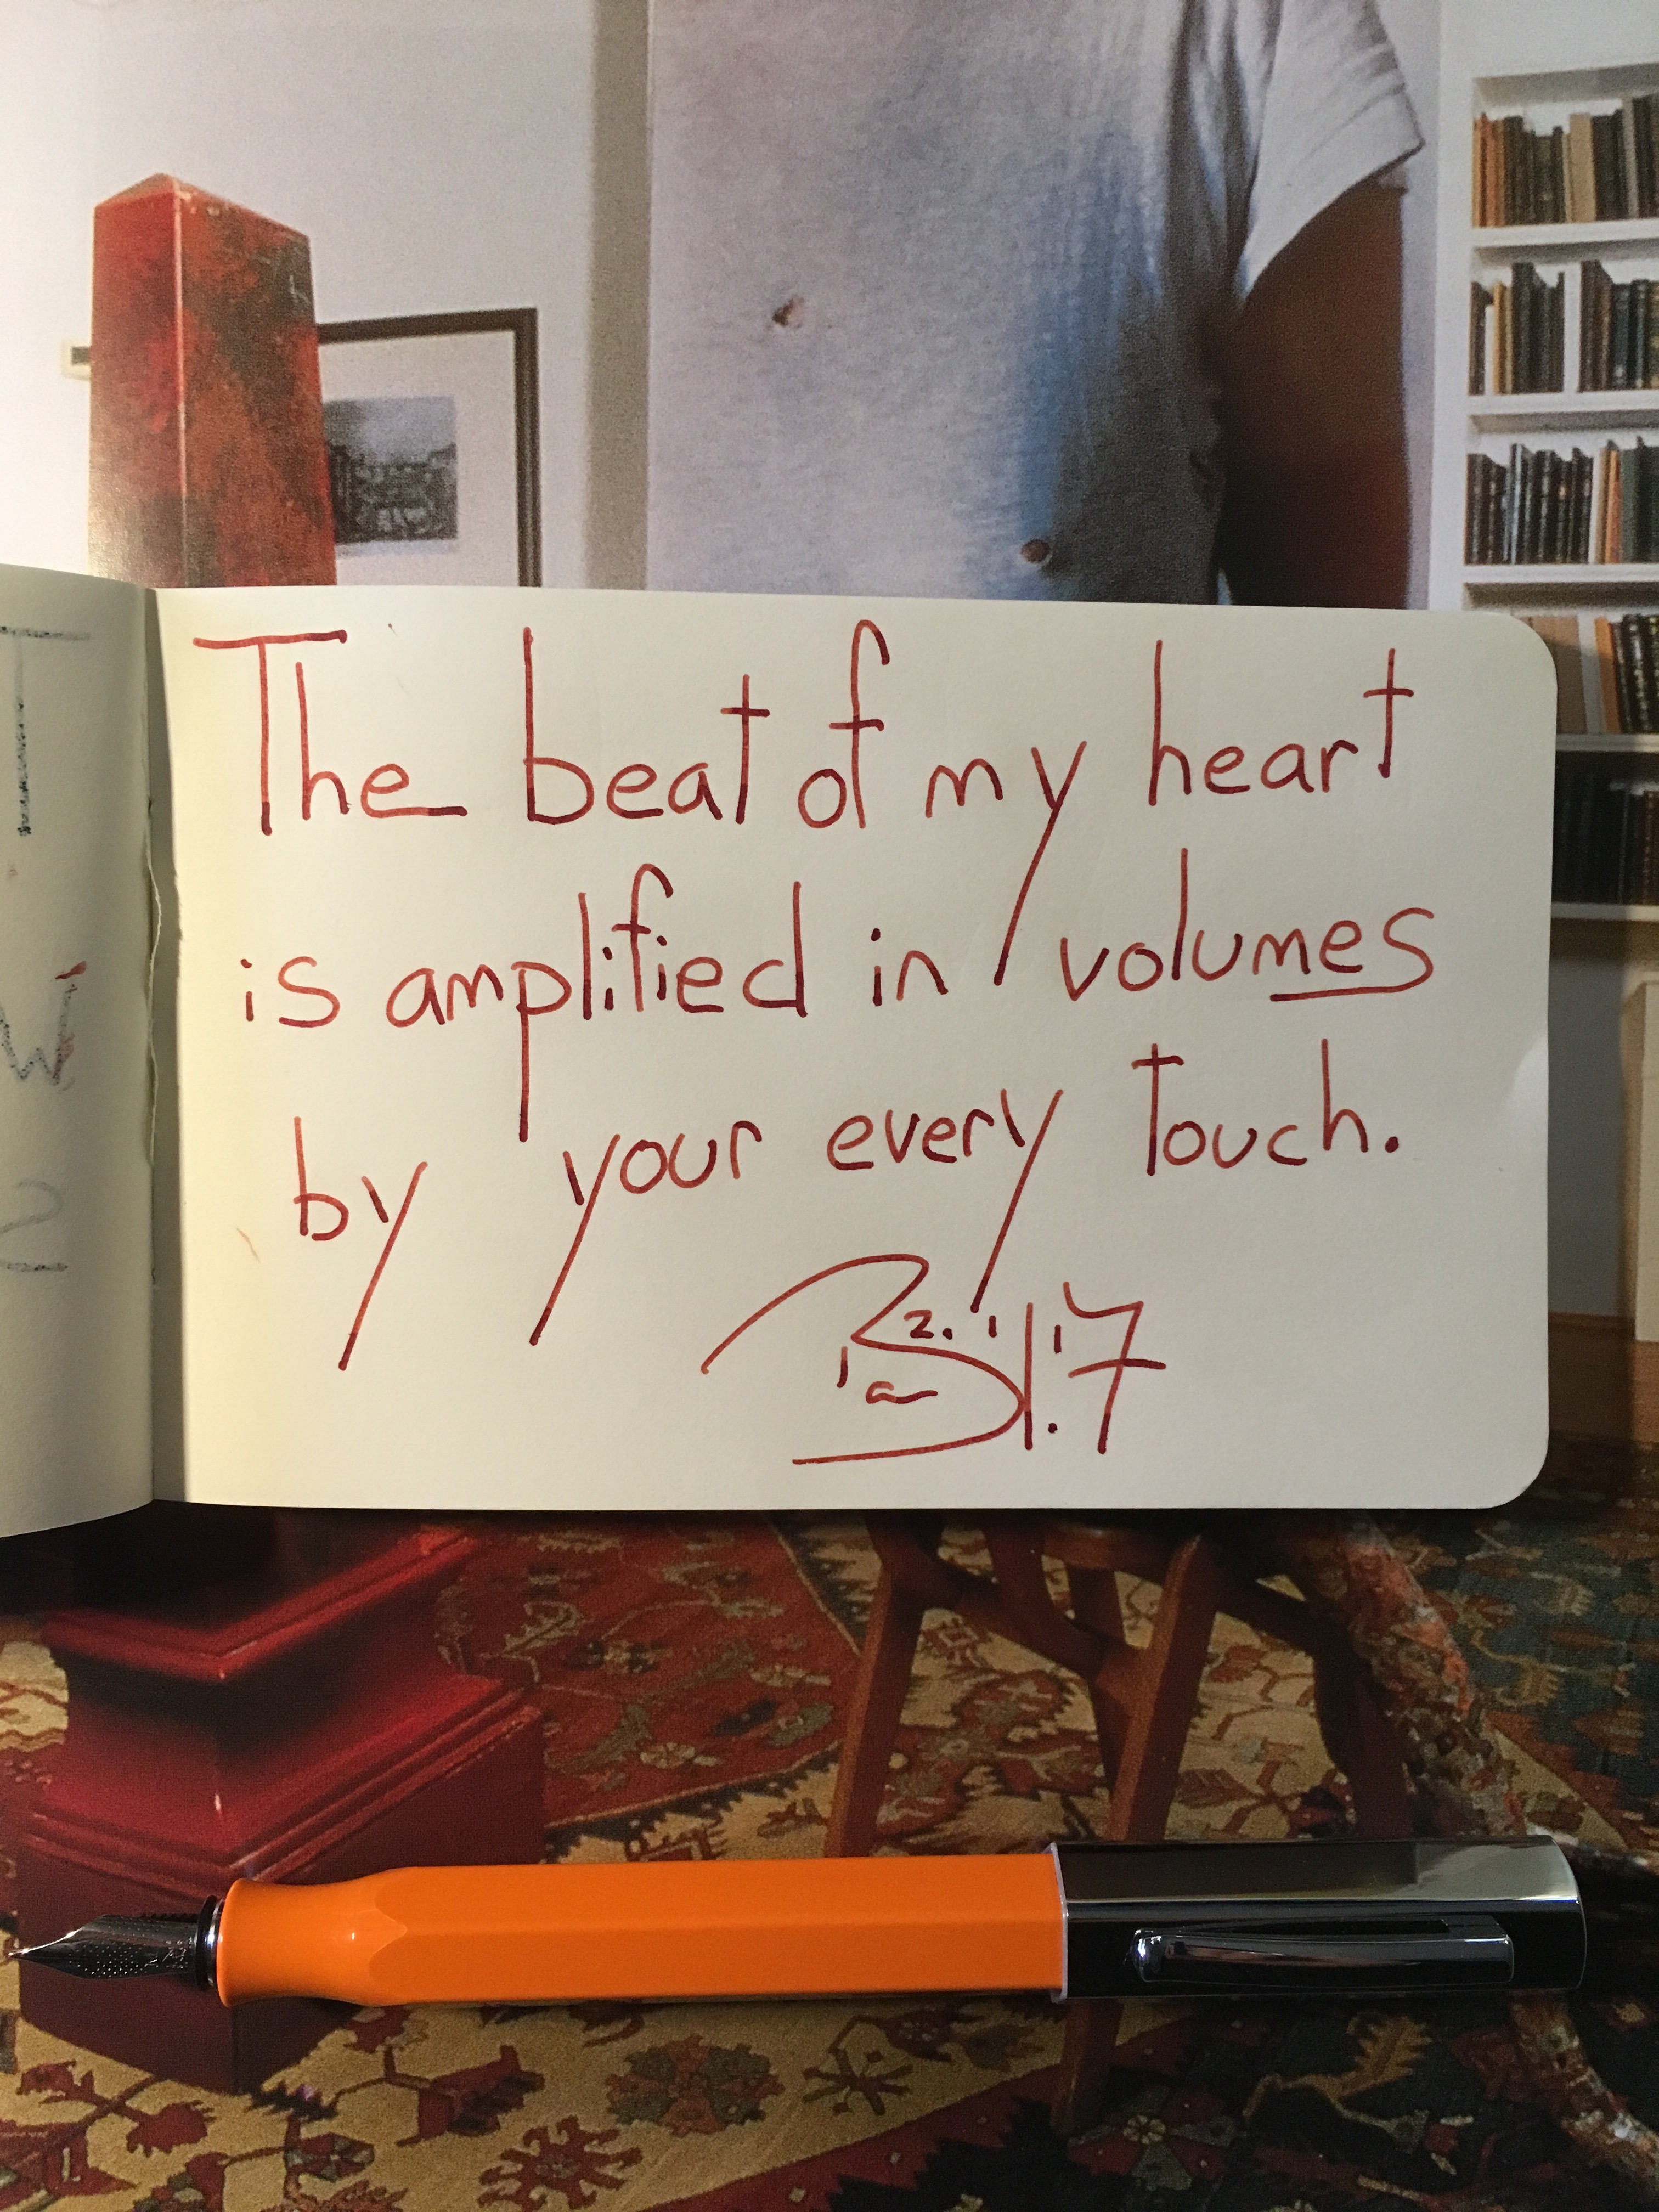 The beat of my heart
is amplified in volumes
by your every touch.
T
W
2